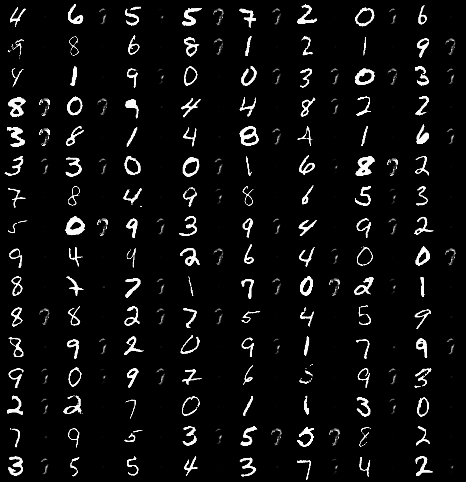 4 6 5 5 7 2 0 6
9 8 6 8 1 2 1 9
4 1 9 0 0 3 0 3
8 0 9 4 4 8 2 2
3 8 1 4 8 4 1 6
3 3 0 0 1 6 8 2
7 8 4 9 8 6 5 3
5 0 9 3 9 4 9 2
9 4 9 2 6 4 0 0
8 7 7 1 7 0 2 1
8 8 2 7 5 4 5 9
8 9 2 0 9 1 7 9
9 0 9 7 6 5 9 3
2 2 7 0 1 1 3 0
7 9 5 3 5 5 8 2
3 5 5 4 3 7 4 2